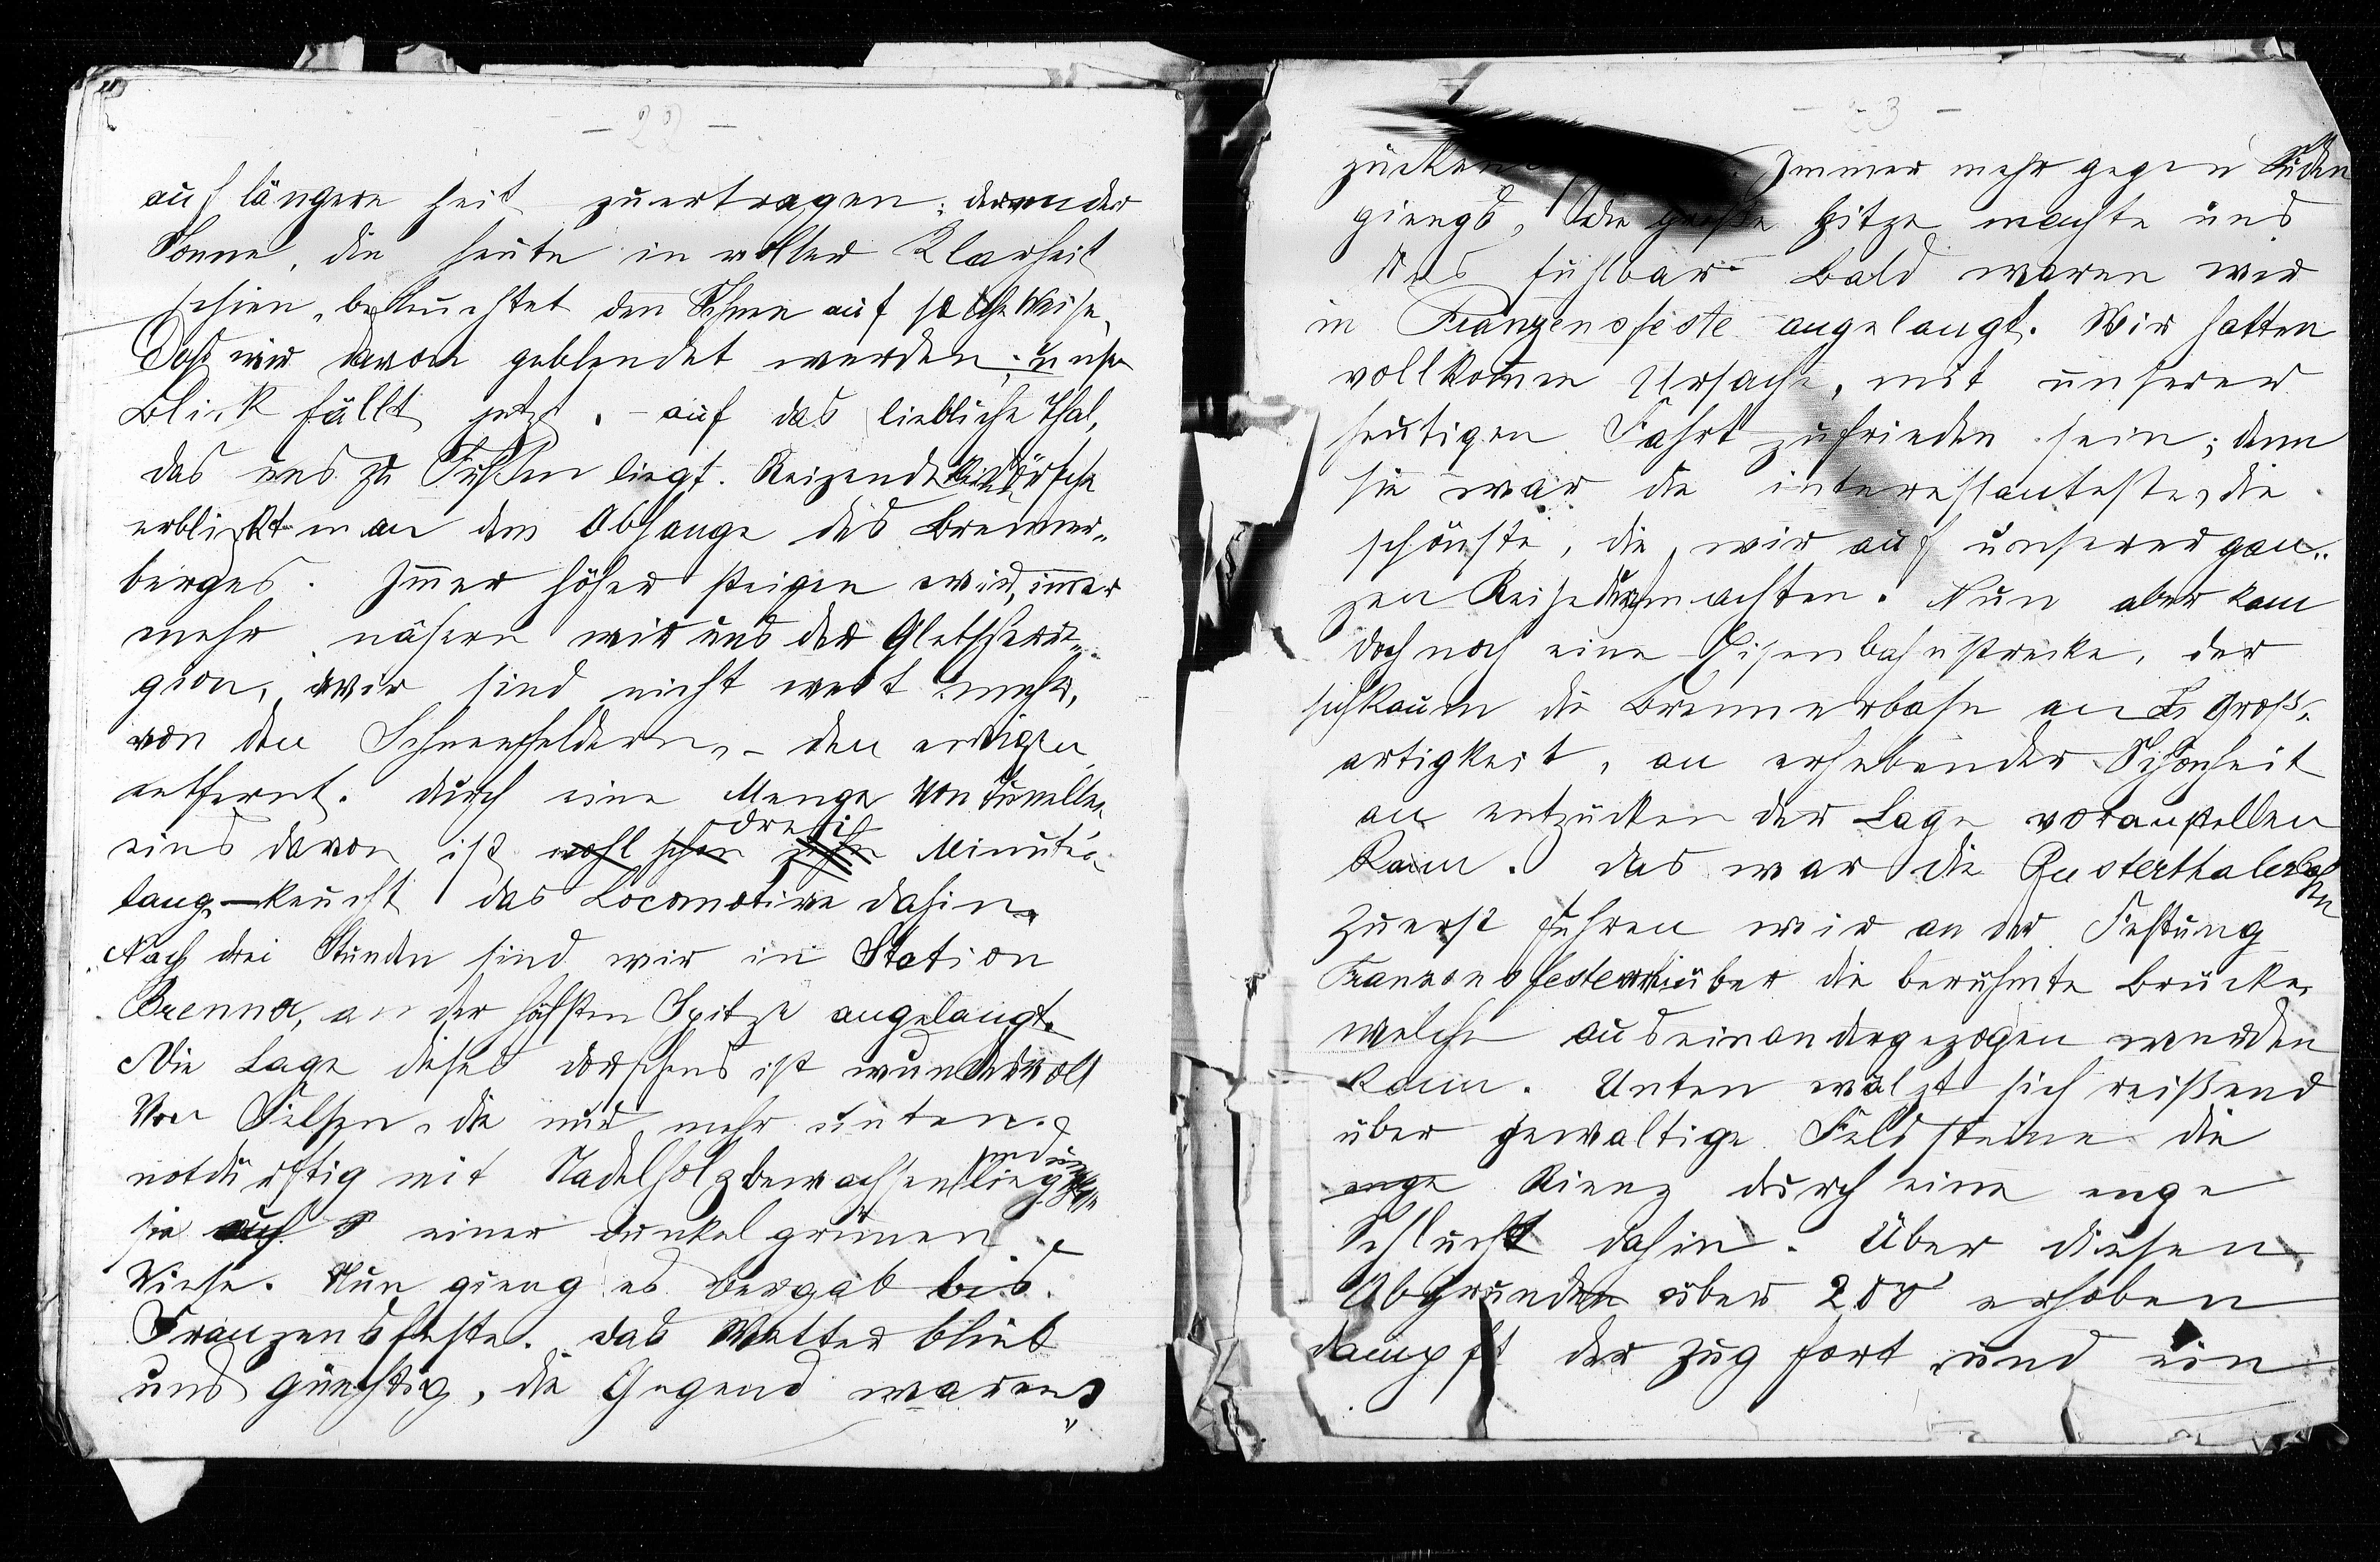 - 22 -
auf längere Zeit zu ertragen; denn der
Sonne, die heute in voller Klarheit
schien, beleuchtet den Schnee auf solche Weise,
Daß wir davon geblendet werden; unser
Blick fällt jetzt - auf das liebliche Thal,
das uns zu Füßen liegt. Reizende
erblickt man am Abhange des Brenner-
berges. Immer höher steigen wir, immer
mehr nähern wir uns der Gletscherre-
gion, wir sind nicht weit mehr,
von den Schneefeldern, - den ewigen
entfernt. Durch eine Menge von Tunellen
eins davon ist wohl schon zehn drei Minuten
lang - keucht das Locomotive dahin.
Nach drei Stunden sind wir in Station
Brenner, an der höchsten Spitze angelangt.
Die Lage dieses Dörfchens ist wundervoll
Von Felsen, die nur mehr unten
notdürftig mit Nadelholz bewachsen sind
sie auf einer dunkelgrünen
Wiese. Nun gieng es bergab bis
Franzensfeste. Das Wetter blieb
uns günstig, die Gegend waren
- 23 -
zückend Immer mehr gegen Süden
giengs, die große Hitze machte uns
das fühlbar. Bald waren wir
in Franzensfeste angelangt. Wir hatten
vollkommen Ursache, mit unserer
heutigen Fahrt zufrieden sein; denn
sie war die interessanteste, die
schönste, die wir auf unserer gan-
zen Reise durchmachten. Nun aber kam
doch noch eine Eisenbahnstrecke, der
sich kaum die Brennerbahn an Groß-
artigkeit, an erhebender Schönheit
an entzückender Lage voranstellen
kann. Das war die Pusterthalerbahn
Zuerst fuhren wir an der Festung
Franzensfeste über die berühmte Brücke,
welche auseinandergezogen werden
kann. Unten wälzt sich reißend
über gewaltige Feldsteine die
enge Rienz durch eine enge
Schlucht dahin. Über diesen
Abgrunden über 200' erhoben
dampft der Zug fort und ein